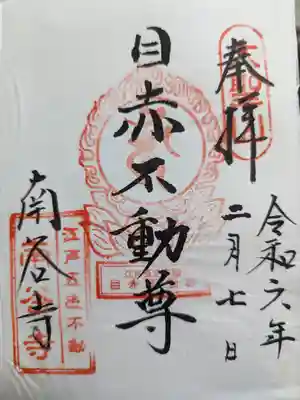 奉拝
令和六年
二月七日
目赤不動尊
南谷寺
江戸五色不動